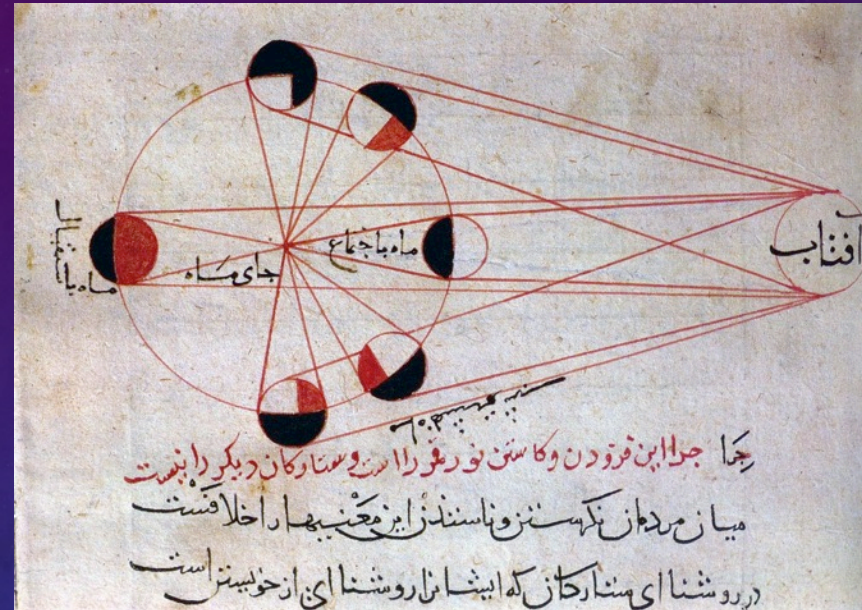 افتاب
ماه باجتماع
جای ماه
ماه باستقبال
چرا این فزودن و کاستن نور قمر را است و ستارکان دیکر را نیست
میان مردمان نکرستن و ناسندن این معنیها را خلافست
در روشنای ستارکان که ایشانرا روشنای از خویشتن است